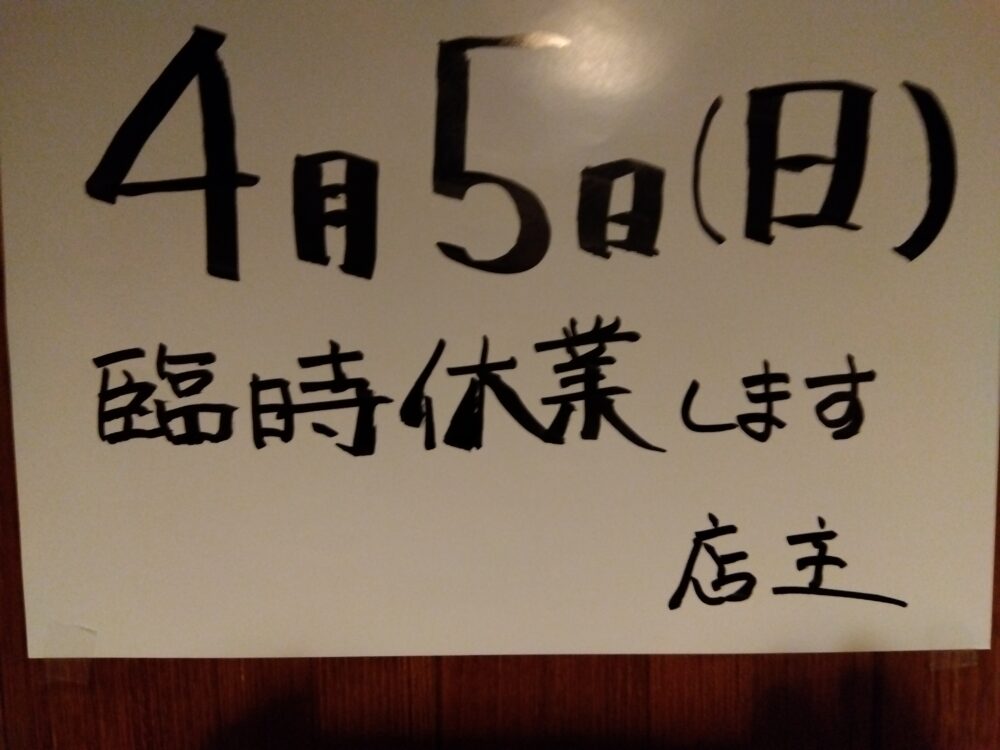 4月5日(日)
臨時休業します
店主